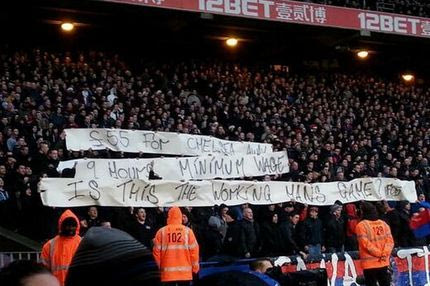 12BET壹贰博
12BET
£55 FOR CHELSEA AWAY
9 HOURS MINIMUM WAGE
IS THIS THE WORKING MANS GAME
102